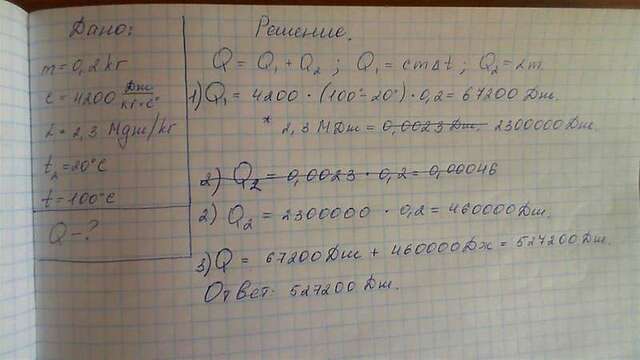 Дано:
m = 0,2 кг
c = 4200 Дж/кг·С°
L = 2,3 Мдж/кг
t₂ = 20°С
t = 100°С
Q - ?
Решение.
Q = Q₁ + Q₂ ; Q₁ = cmΔt ; Q₂ = Lm
1) Q₁ = 4200 · (100° - 20°) · 0,2 = 67200 Дж.
* 2,3 МДж = 0,0023 Дж. 2300000 Дж.
2) Q₂ = 0,0023 · 0,2 = 0,00046
2) Q₂ = 2300000 · 0,2 = 460000 Дж.
3) Q = 67200 Дж + 460000 Дж = 527200 Дж.
Ответ: 527200 Дж.